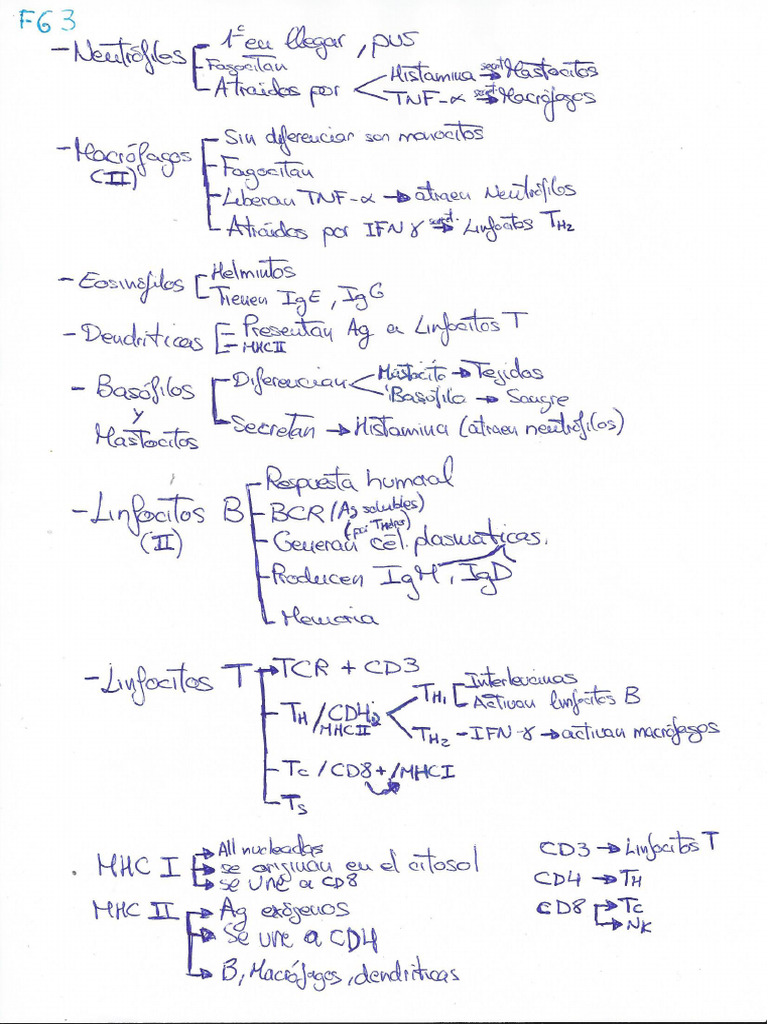 FG 3
- Neutrófilos
1º en llegar, pus
Fagocitan
Atraidos por
Histamina → Mastocitos
TNF-α → Macrófagos
- Macrófagos
(II)
Sin diferenciar son monocitos
Fagocitan
Liberan TNF-α → atraen Neutrófilos
Atraidos por IFN γ → Linfocitos TH2
- Eosinófilos
Helmintos
Tienen IgE, IgG
- Dendríticas
Presentan Ag a Linfocitos T
MHC II
- Basófilos
y
Mastocitos
Diferencian
Mastocito → Tejidos
Basófilo → Sangre
Secretan → Histamina (atraen neutrófilos)
- Linfocitos B
(II)
Respuesta humoral
BCR (Ag solubles)
Generan cél. plasmáticas.
Producen IgM, IgD
Memoria
- Linfocitos T
TCR + CD3
TH/CD4
MHC II
TH1
Interleucinas
Activan linfocitos B
TH2 - IFN-γ → activan macrófagos
Tc/CD8+/MHC I
Ts
MHC I
All nucleadas
se originan en el citosol
se une a CD8
MHC II
Ag exógenos
Se une a CD4
B, Macrófagos, dendríticas
CD3 → Linfocitos T
CD4 → TH
CD8
Tc
NK